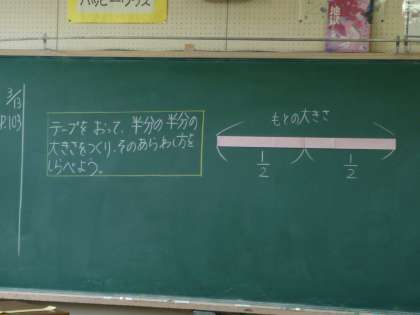 ハッピーグッズ
地球
3/13
P.103
テープを おって、半分の半分の
大きさをつくり、そのあらわし方を
しらべよう。
もとの大きさ
1/2
1/2